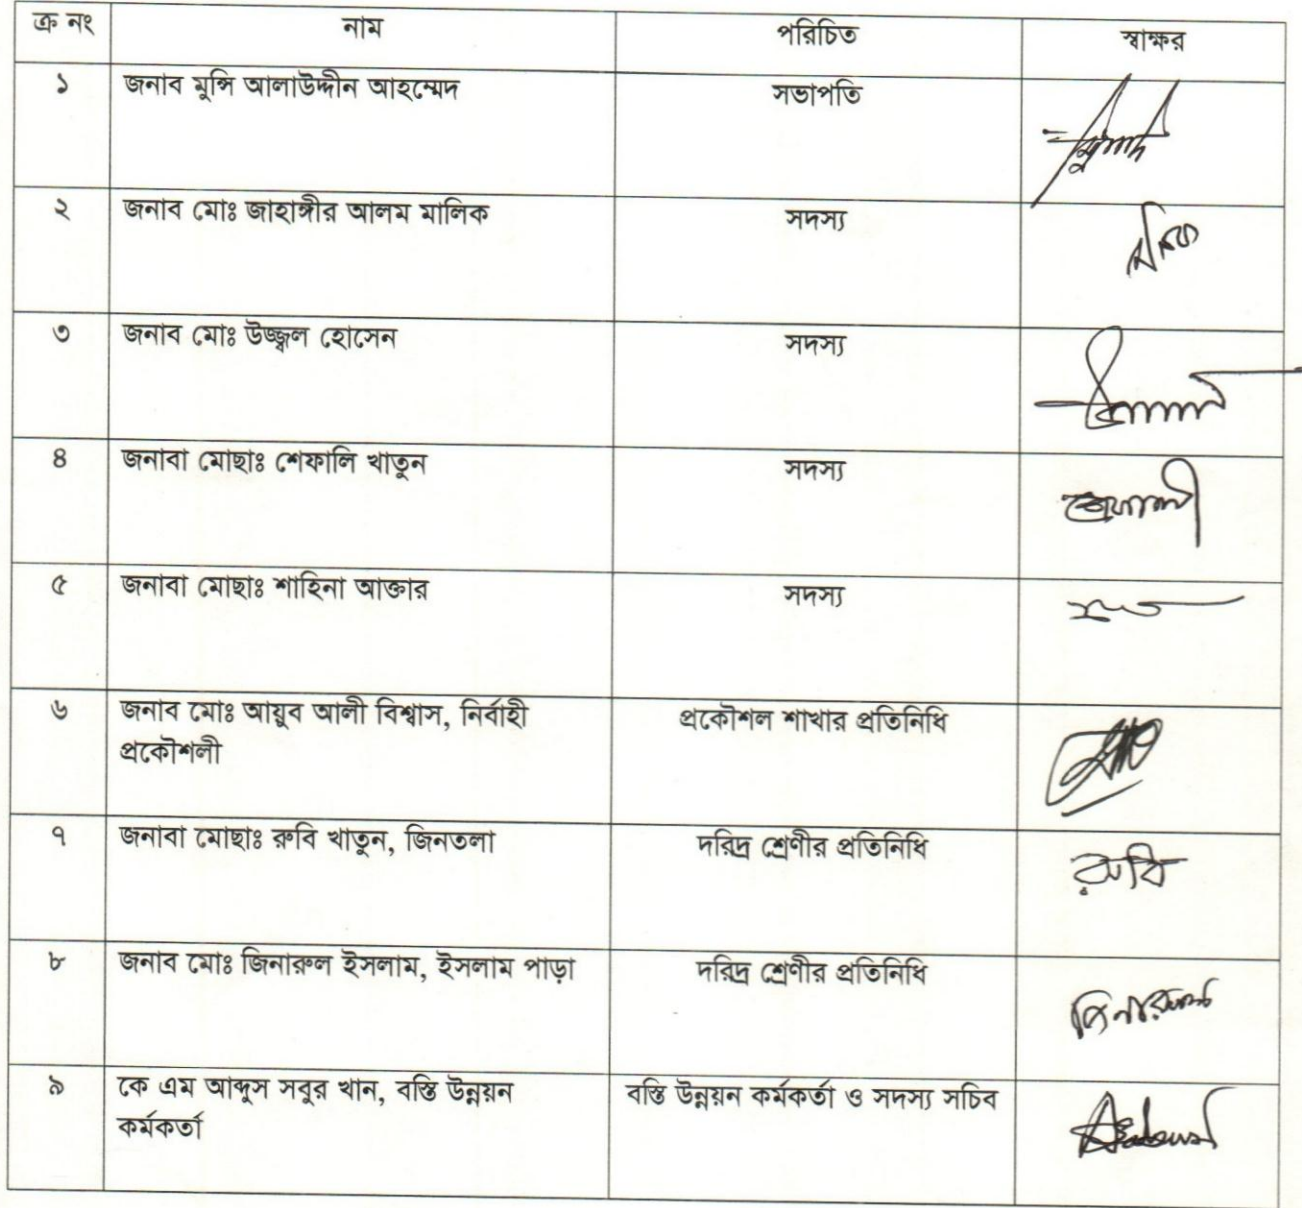 ক্র নং নাম পরিচিত স্বাক্ষর
১ জনাব মুন্সি আলাউদ্দীন আহম্মেদ সভাপতি
২ জনাব মোঃ জাহাঙ্গীর আলম মালিক সদস্য
৩ জনাব মোঃ উজ্জ্বল হোসেন সদস্য
৪ জনাবা মোছাঃ শেফালি খাতুন সদস্য শেফালী
৫ জনাবা মোছাঃ শাহিনা আক্তার সদস্য
৬ জনাব মোঃ আয়ুব আলী বিশ্বাস, নির্বাহী প্রকৌশল শাখার প্রতিনিধি
প্রকৌশলী
৭ জনাবা মোছাঃ রুবি খাতুন, জিনতলা দরিদ্র শ্রেণীর প্রতিনিধি রুবি
৮ জনাব মোঃ জিনারুল ইসলাম, ইসলাম পাড়া দরিদ্র শ্রেণীর প্রতিনিধি জিনারুল
৯ কে এম আব্দুস সবুর খান, বস্তি উন্নয়ন বস্তি উন্নয়ন কর্মকর্তা ও সদস্য সচিব
কর্মকর্তা